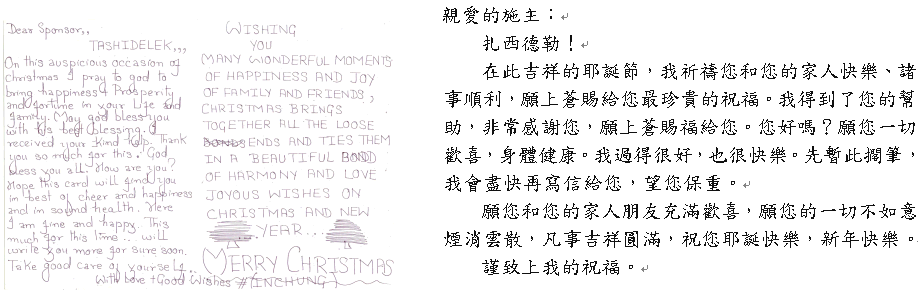 Dear Sponsor,,
TASHIDELEK,,,
On this auspicious occasion of
Christmas I pray to god to
bring happiness & Prosperity
and fortune in your life and
family. May god bless you
with his best blessing. I
received your kind help. Thank
you so much for this. God
bless you all. How are you?
Hope this card will find you
in best of cheer and happiness
and in sound health. Here
I am fine and happy. This
much for this time... will
write you more for sure soon.
Take good care of yourself...
With Love + Good Wishes
WISHING
YOU
MANY WONDERFUL MOMENTS
OF HAPPINESS AND JOY
OF FAMILY AND FRIENDS,
CHRISTMAS BRINGS
TOGETHER ALL THE LOOSE
ENDS AND TIES THEM
IN A BEAUTIFUL BOND
OF HARMONY AND LOVE
JOYOUS WISHES ON
CHRISTMAS AND NEW
...YEAR...
MERRY CHRISTMAS
親愛的施主：
扎西德勒！
在此吉祥的耶誕節，我祈禱您和您的家人快樂、諸
事順利，願上蒼賜給您最珍貴的祝福。我得到了您的幫
助，非常感謝您，願上蒼賜福給您。您好嗎？願您一切
歡喜，身體健康。我過得很好，也很快樂。先暫此擱筆，
我會盡快再寫信給您，望您保重。
願您和您的家人朋友充滿歡喜，願您的一切不如意
煙消雲散，凡事吉祥圓滿，祝您耶誕快樂，新年快樂。
謹致上我的祝福。